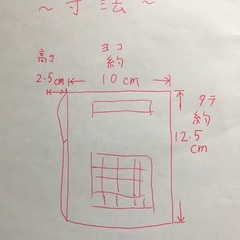 ~寸法~
高さ
2.5cm
ヨコ
約
10cm
タテ
約
12.5
cm